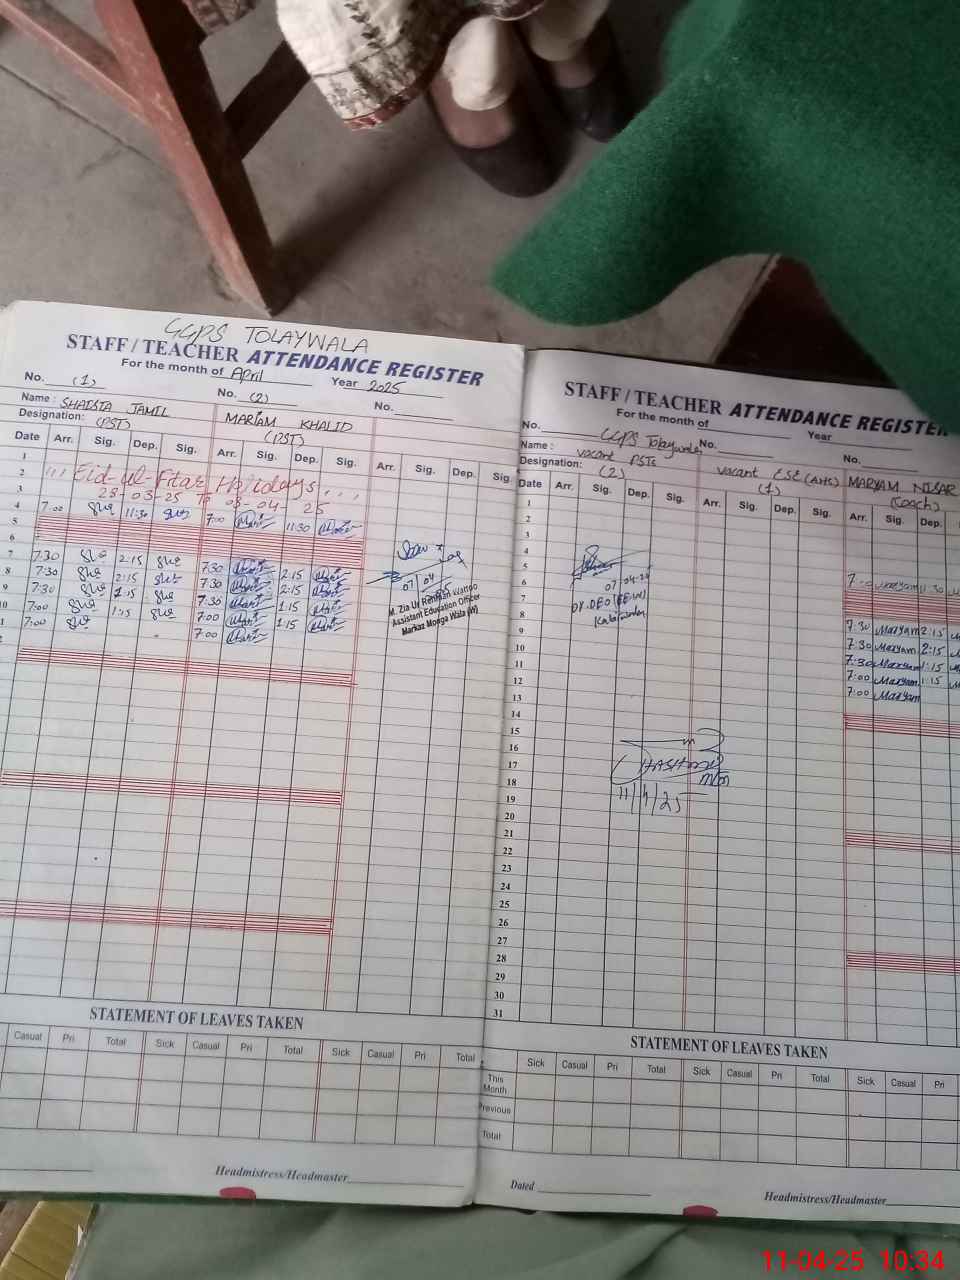 GGPS TOLAYWALA
STAFF / TEACHER ATTENDANCE REGISTER
For the month of April Year 2025
No. (1) No. (2) No.
Name : SHAISTA JAMIL MARIAM KHALID
Designation: (PST) (PST)
Date Arr. Sig. Dep. Sig. Arr. Sig. Dep. Sig. Arr. Sig. Dep. Sig.
1
2 Eid-ul-Fitar Holidays
3 28-03-25 To 03-04-25
4 7:00 11:30 7:00 11:30
5
6
7 7:30 2:15 7:30 2:15
8 7:30 2:15 7:30 2:15
9 7:30 1:15 7:30 1:15
10 7:00 1:15 7:00 1:15
7:00 7:00
07/04
M. Zia Ur Rehman Wattoo
Assistant Education Officer
Markaz Monga Wala (W)
STATEMENT OF LEAVES TAKEN
Casual Pri Total Sick Casual Pri Total Sick Casual Pri Total
Headmistress/Headmaster
STAFF / TEACHER ATTENDANCE REGISTER
For the month of Year
No. GGPS Tolaywala No. No.
Name : vacant PSTs vacant EST (Arts) MARYAM NISAR
Designation: (2) (1) (Coach)
Date Arr. Sig. Dep. Sig. Arr. Sig. Dep. Sig. Arr. Sig. Dep.
1
2
3
4 Maryam 11:30
5
6 07-04-25
7 DY.DEO (EE-W) 7:30 Maryam 2:15
8 7:30 Maryam 2:15
9 7:30 Maryam 1:15
10 7:00 Maryam 1:15
11 7:00 Maryam
12
13
14
15
16
17
18
19 11/4/25
20
21
22
23
24
25
26
27
28
29
30
31
STATEMENT OF LEAVES TAKEN
Sick Casual Pri Total Sick Casual Pri Total Sick Casual Pri
This Month
Previous
Total
Dated Headmistress/Headmaster
11-04-25 10:34